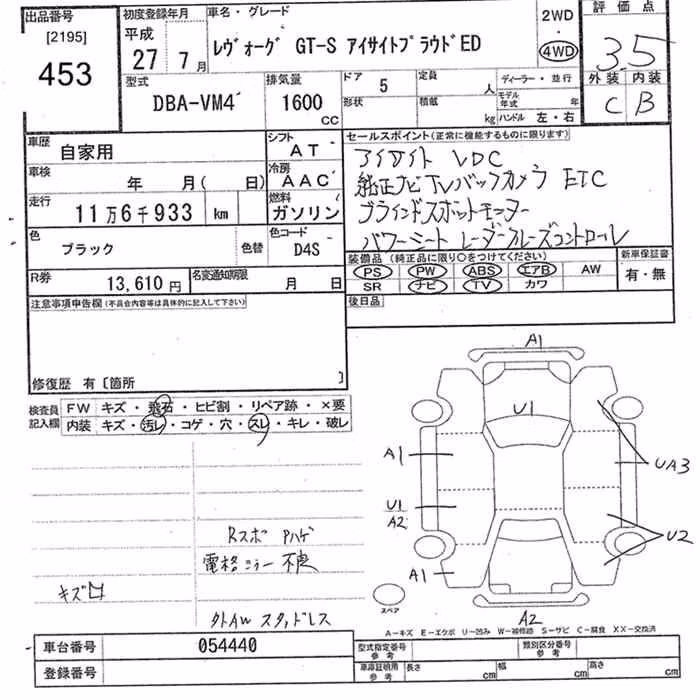 出品番号
[2195]
453
初度登録年月
平成
27 7月
車名・グレード
レヴォーグ GT-S アイサイトプラウドED
2WD
・
4WD
評価点
3.5
外装 内装
C B
型式
DBA-VM4
排気量
1600
cc
ドア 5
形状
定員 人
積載 kg
ディーラー・並行
モデル年式 年
ハンドル 左・右
車歴
自家用
シフト
AT
車検
年 月( 日)
冷房
AAC
走行
11万6千933 km
燃料
ガソリン
色
ブラック
色替
色コード
D4S
R券
13,610円
名変通知期限
月 日
セールスポイント(正常に機能するものに限ります)
アイサイト VDC
純正ナビ TV バックカメラ ETC
ブラインドスポットモニター
パワーシート レーダークルーズコントロール
装備品(純正品に限り○をつけてください)
PS PW ABS エアB AW
SR ナビ TV カワ
新車保証書
有・無
後日品
注意事項申告欄(不具合内容等は具体的に記入して下さい)
修復歴 有〔箇所 〕
検査員記入欄
FW キズ・飛石・ヒビ割・リペア跡・×要
内装 キズ・汚レ・コゲ・穴・スレ・キレ・破レ
A1
U1
A1
UA3
U1
A2
U2
A1
A2
Rスポ Pハゲ
電格ミラー 不良
キズ凹
外AW スタッドレス
スペア
A－キズ E－エクボ U－凹み W－補修跡 S－サビ C－腐食 XX－交換済
車台番号 054440
登録番号
型式指定番号
参考
類別区分番号
参考
車庫証明用
参考
長さ cm
幅 cm
高さ cm